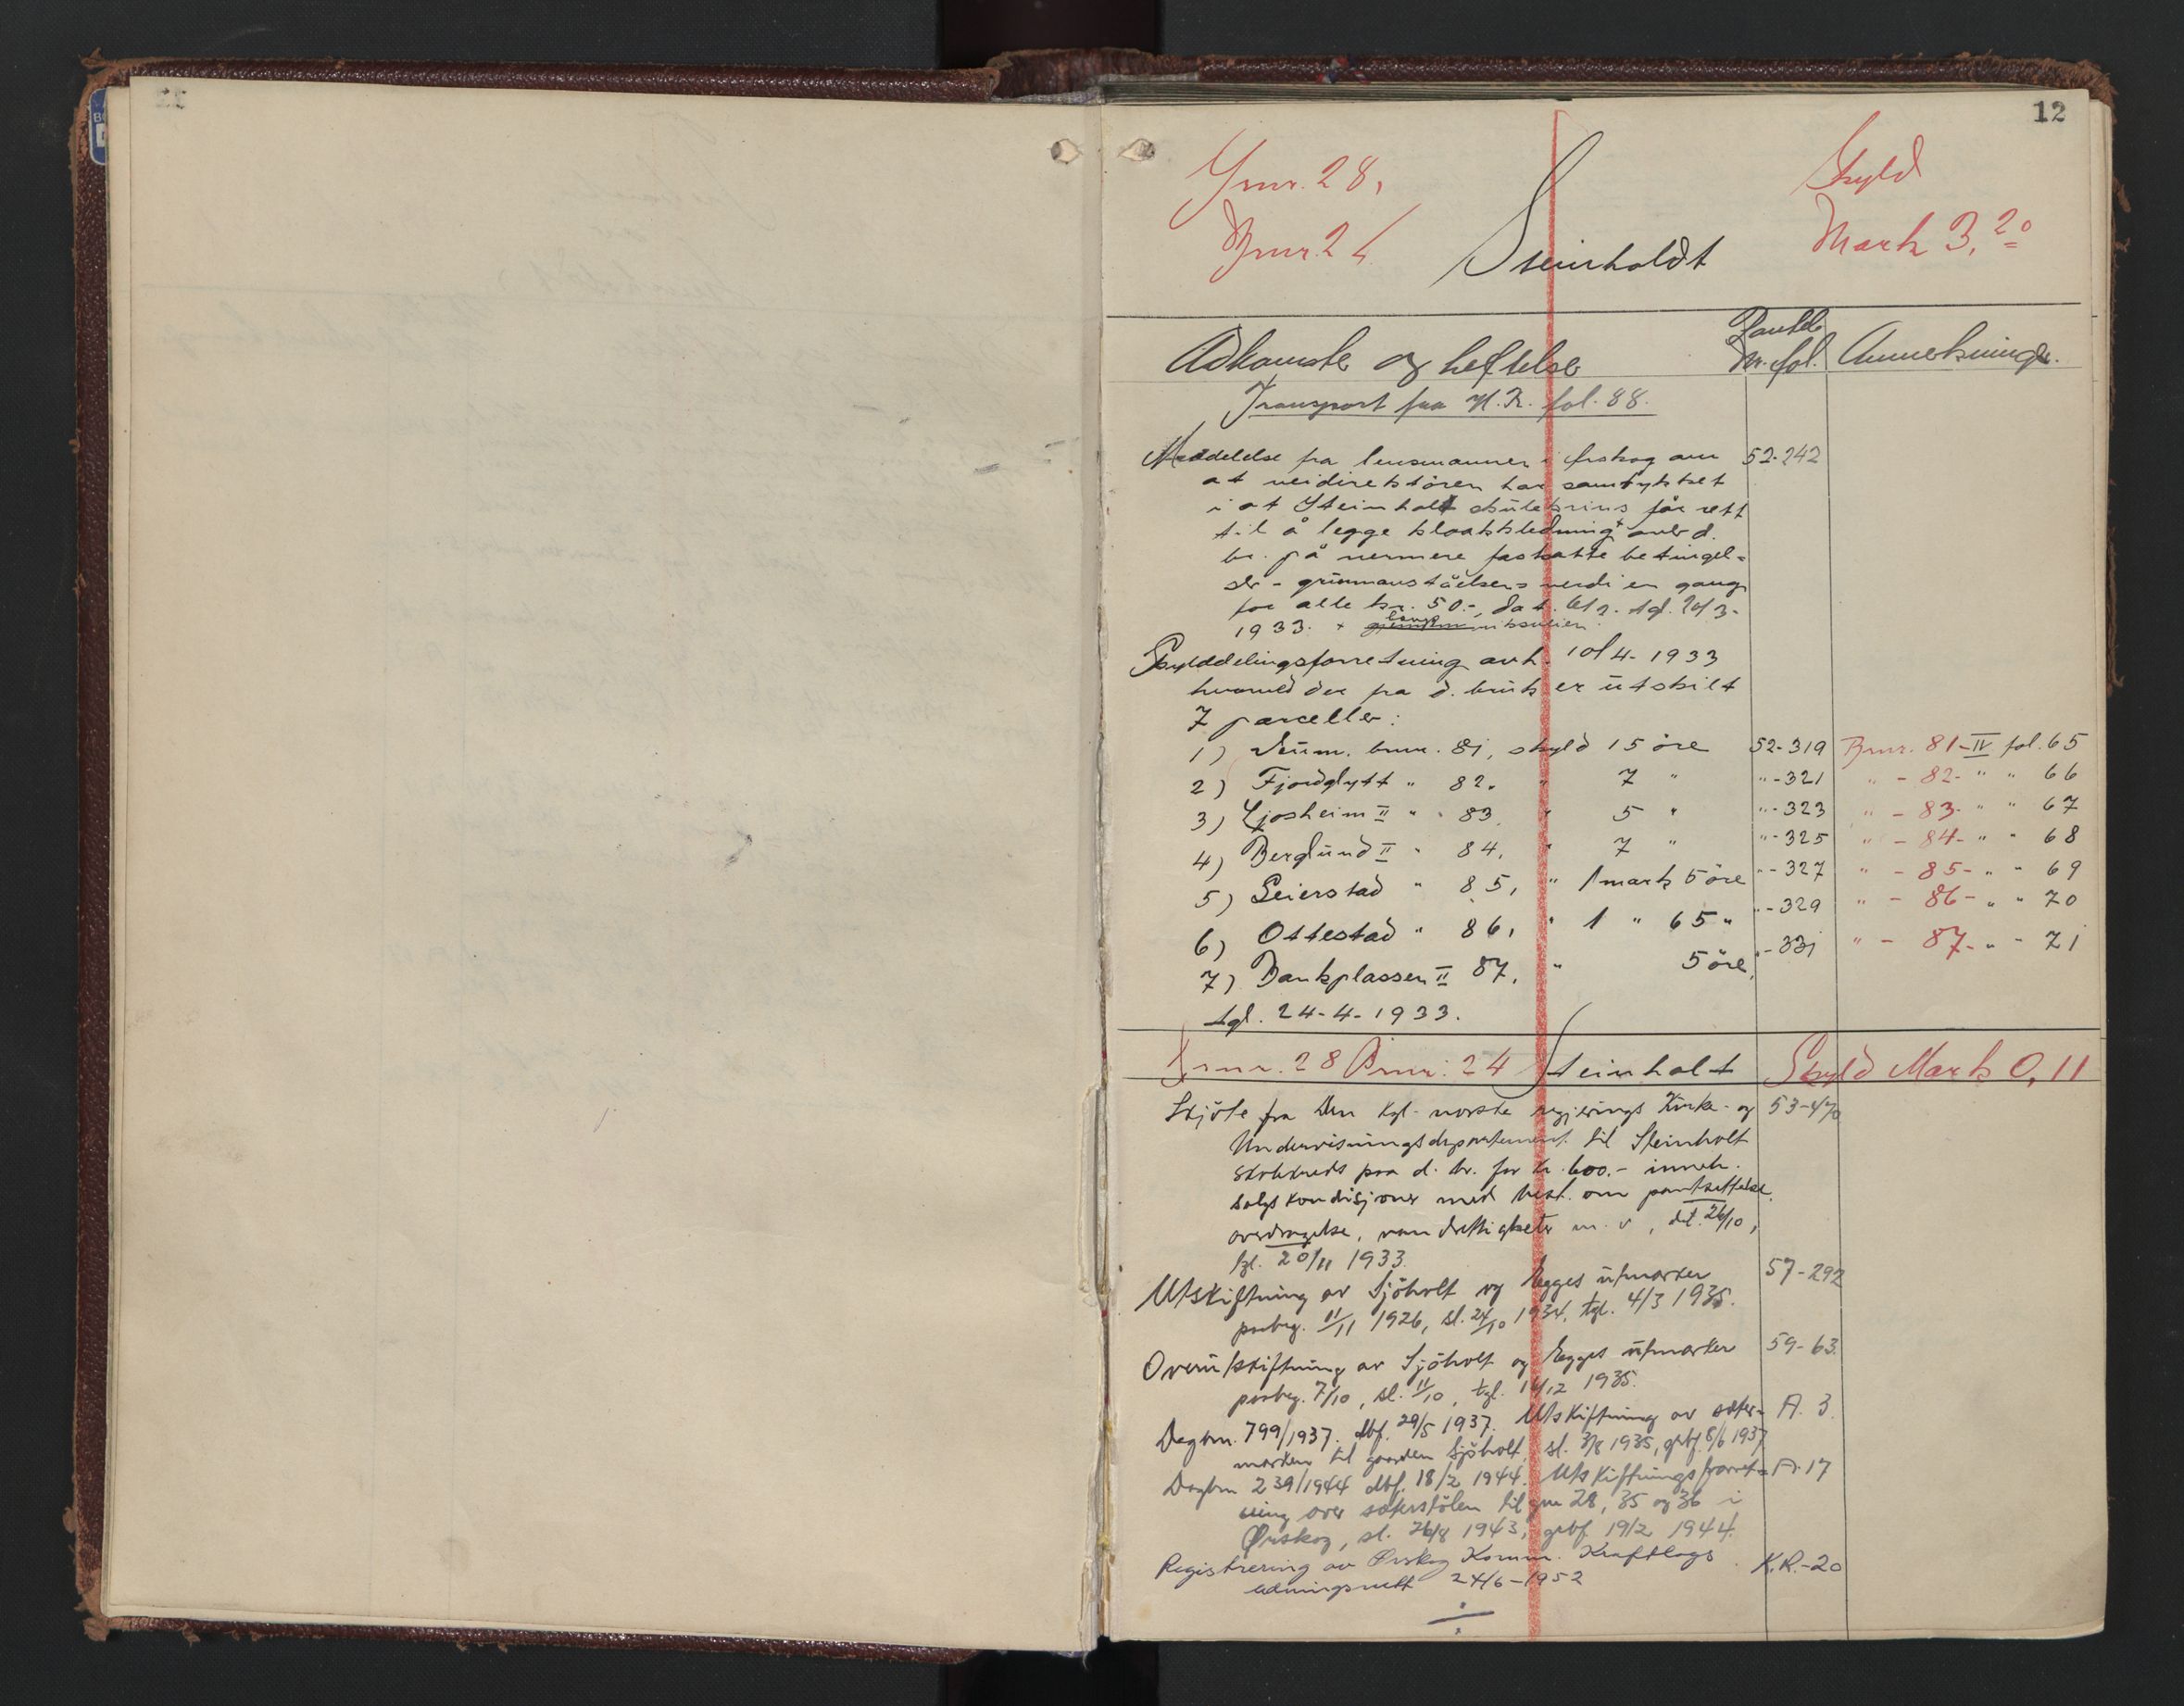 12
Gnr. 28,
Bnr. 24
Steinholdt
Skyld
Mark 3,20
Adkomster og heftelser
Pantebo.
Nr. fol.
Anmerkninger.
Transport fra N.R. fol. 88.
Meddelelse fra lensmannen i Ørskog om 52-242
at veidirektören har samtykket
i at Steinholt skülekrins får rett
til å legge kloakkledning + over d.
br. på nermere fastsatte betingel-
ser - grünnavståelsens verdi en gang
for alle kr. 50.-, dat. tgl. 20/3-
1933. + langs riksveien.
Skylddelingsforretning avh. 10/4-1933
hvorved der fra d. brük er ütskilt
7 parceller:
1) bnr. 81, skyld 15 öre 52-319 Bnr. 81-IV fol. 65
2) Fjordglytt " 82, " 7 " "-321 " - 82- " " 66
3) Ljosheim II " " 83, " 5 " "-323 " - 83- " " 67
4) Berglünd II " 84, " 7 " "-325 " - 84- " " 68
5) Seierstad " 85, " 1 mark 5 öre "-327 " - 85- " " 69
6) Ottestad " 86, " 1 " 65 " "-329 " - 86- " " 70
7) Bankplassen II 87, " 5 öre, "-331 " - 87- " " 71
tgl. 24-4-1933.
Gnr. 28 Bnr. 24 Steinholt Skyld Mark 0,11
Skjöte fra Den kgl. norske regjerings Kirke- og 53-470
Undervisningsdepartement til Steinholt
skolekreds paa d. br. for kr. 600.- inneh.
salgskondisjoner med best. om pantsettelse,
overdragelse, vandrettigheter m. v., dat. 26/10,
tgl. 20/11 1933.
Utskiftning av Sjöholt og Egges ütmarker 57-292
paabeg. 11/11 1926, sl. 24/10 1934, tgl. 4/3 1935.
Overütskiftning av Sjöholt og Egges ütmarker 59-63.
paabeg. 7/10, sl. 11/10, tgl. 14/12 1935.
Dagbnr. 799/1937. dbf. 29/5 1937. Utskiftning av seter- A. 3.
marken til gaarden Sjöholt, sl. 3/8 1935, grbf. 8/6 1937
Dagbnr 239/1944 dbf. 18/2 1944. Utskiftningsforret- A. 17
ning over seterstölen til gnr 28, 35 og 36 i
Ørskog, sl. 26/8 1943, grbf 19/2 1944.
Registrering av Ørskog Komm. Kraftlags K.R.-20
ledningsnett 24/6-1952